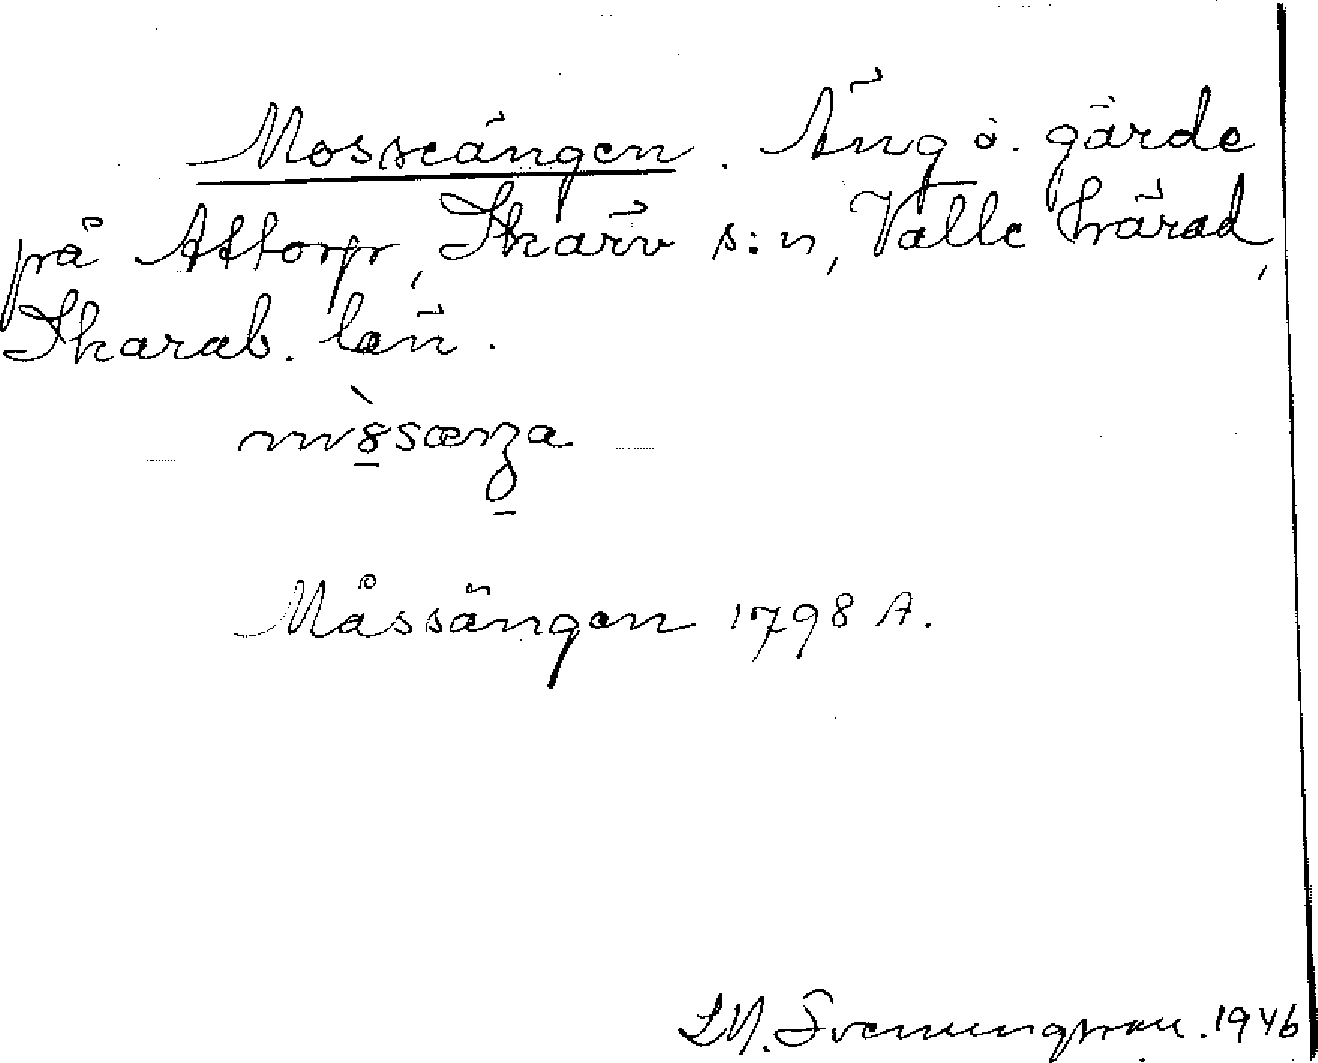 Mosseängen. Äng o. gärde
på Attorp, Skärv s:n, Valle härad,
Skarab. län.
Måssängen 1798 A.
Svenungsson. 1946